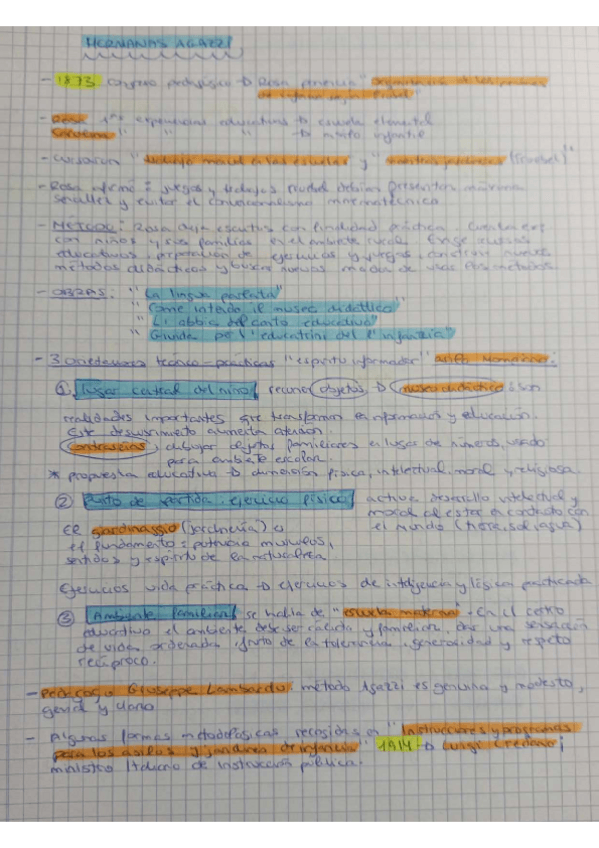 HERMANAS AGAZZI
- 1873 Congreso pedagógico → Rosa ponencia "Organización de los jardines
de infancia según Fröebel"
- Rosa 1ᵃˢ experiencias educativas → escuela elemental
Carolina " " " → infantil
- Cursaron " manual en las escuelas" y " (Fröebel)"
- Rosa afirmó = juegos y trabajos Froebel debían presentar máxima
sencillez y evitar el convencionalismo mnemotécnica
- MÉTODO: Rosa deja escritos con finalidad práctica.
con niños y sus familias en el ambiente rural. Exige
educativos, preparación de ejercicios y juegos, construir nuevos
métodos didácticos y buscar nuevos modos de
- OBRAS: "La lingua parlata"
"Come intendo il museo didattico"
"L' abbici del canto educativo"
"Guida per l' educatrici del l' infanzia"
- 3 orientaciones teórico-prácticas "espíritu informador" :
① lugar central del niño recurso objetos → museo didáctico: son
realidades importantes que transforman en información y educación.
Este descubrimiento aumenta atención.
Contraseñas, dibujar objetos familiares en lugar de números, usado
para ambiente escolar.
* propuesta educativa → dimensión física, intelectual, moral y religiosa.
② Punto de partida: ejercicio físico activa desarrollo intelectual y
moral al estar en contacto con
el mundo (tierra, sol, agua)
El giardinaggio (jardinería) es
el fundamento = potencia músculos,
sentidos y espíritu de la naturaleza
Ejercicios vida práctica → ejercicios de inteligencia y lógica practicada
③ Ambiente familiar se habla de "escuela materna". En el centro
educativo el ambiente debe ser cálido y familiar, dar una sensación
de vida ordenada, fruto de la tolerancia, generosidad y respeto
recíproco.
- Pedagogo Giuseppe Lombardo: método Agazzi es genuino y modesto,
genial y claro
- Algunas formas metodológicas recogidas en "Instrucciones y programas
para los asilos y jardines de infancia" 1914 → Luigi Credaro;
ministro Italiano de instrucción pública.